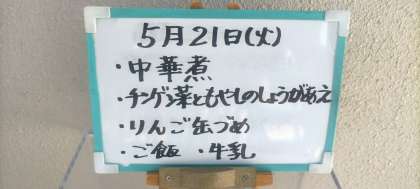 5月21日(火)
・中華煮
・チンゲン菜ともやしのしょうがあえ
・りんご缶づめ
・ご飯 ・牛乳